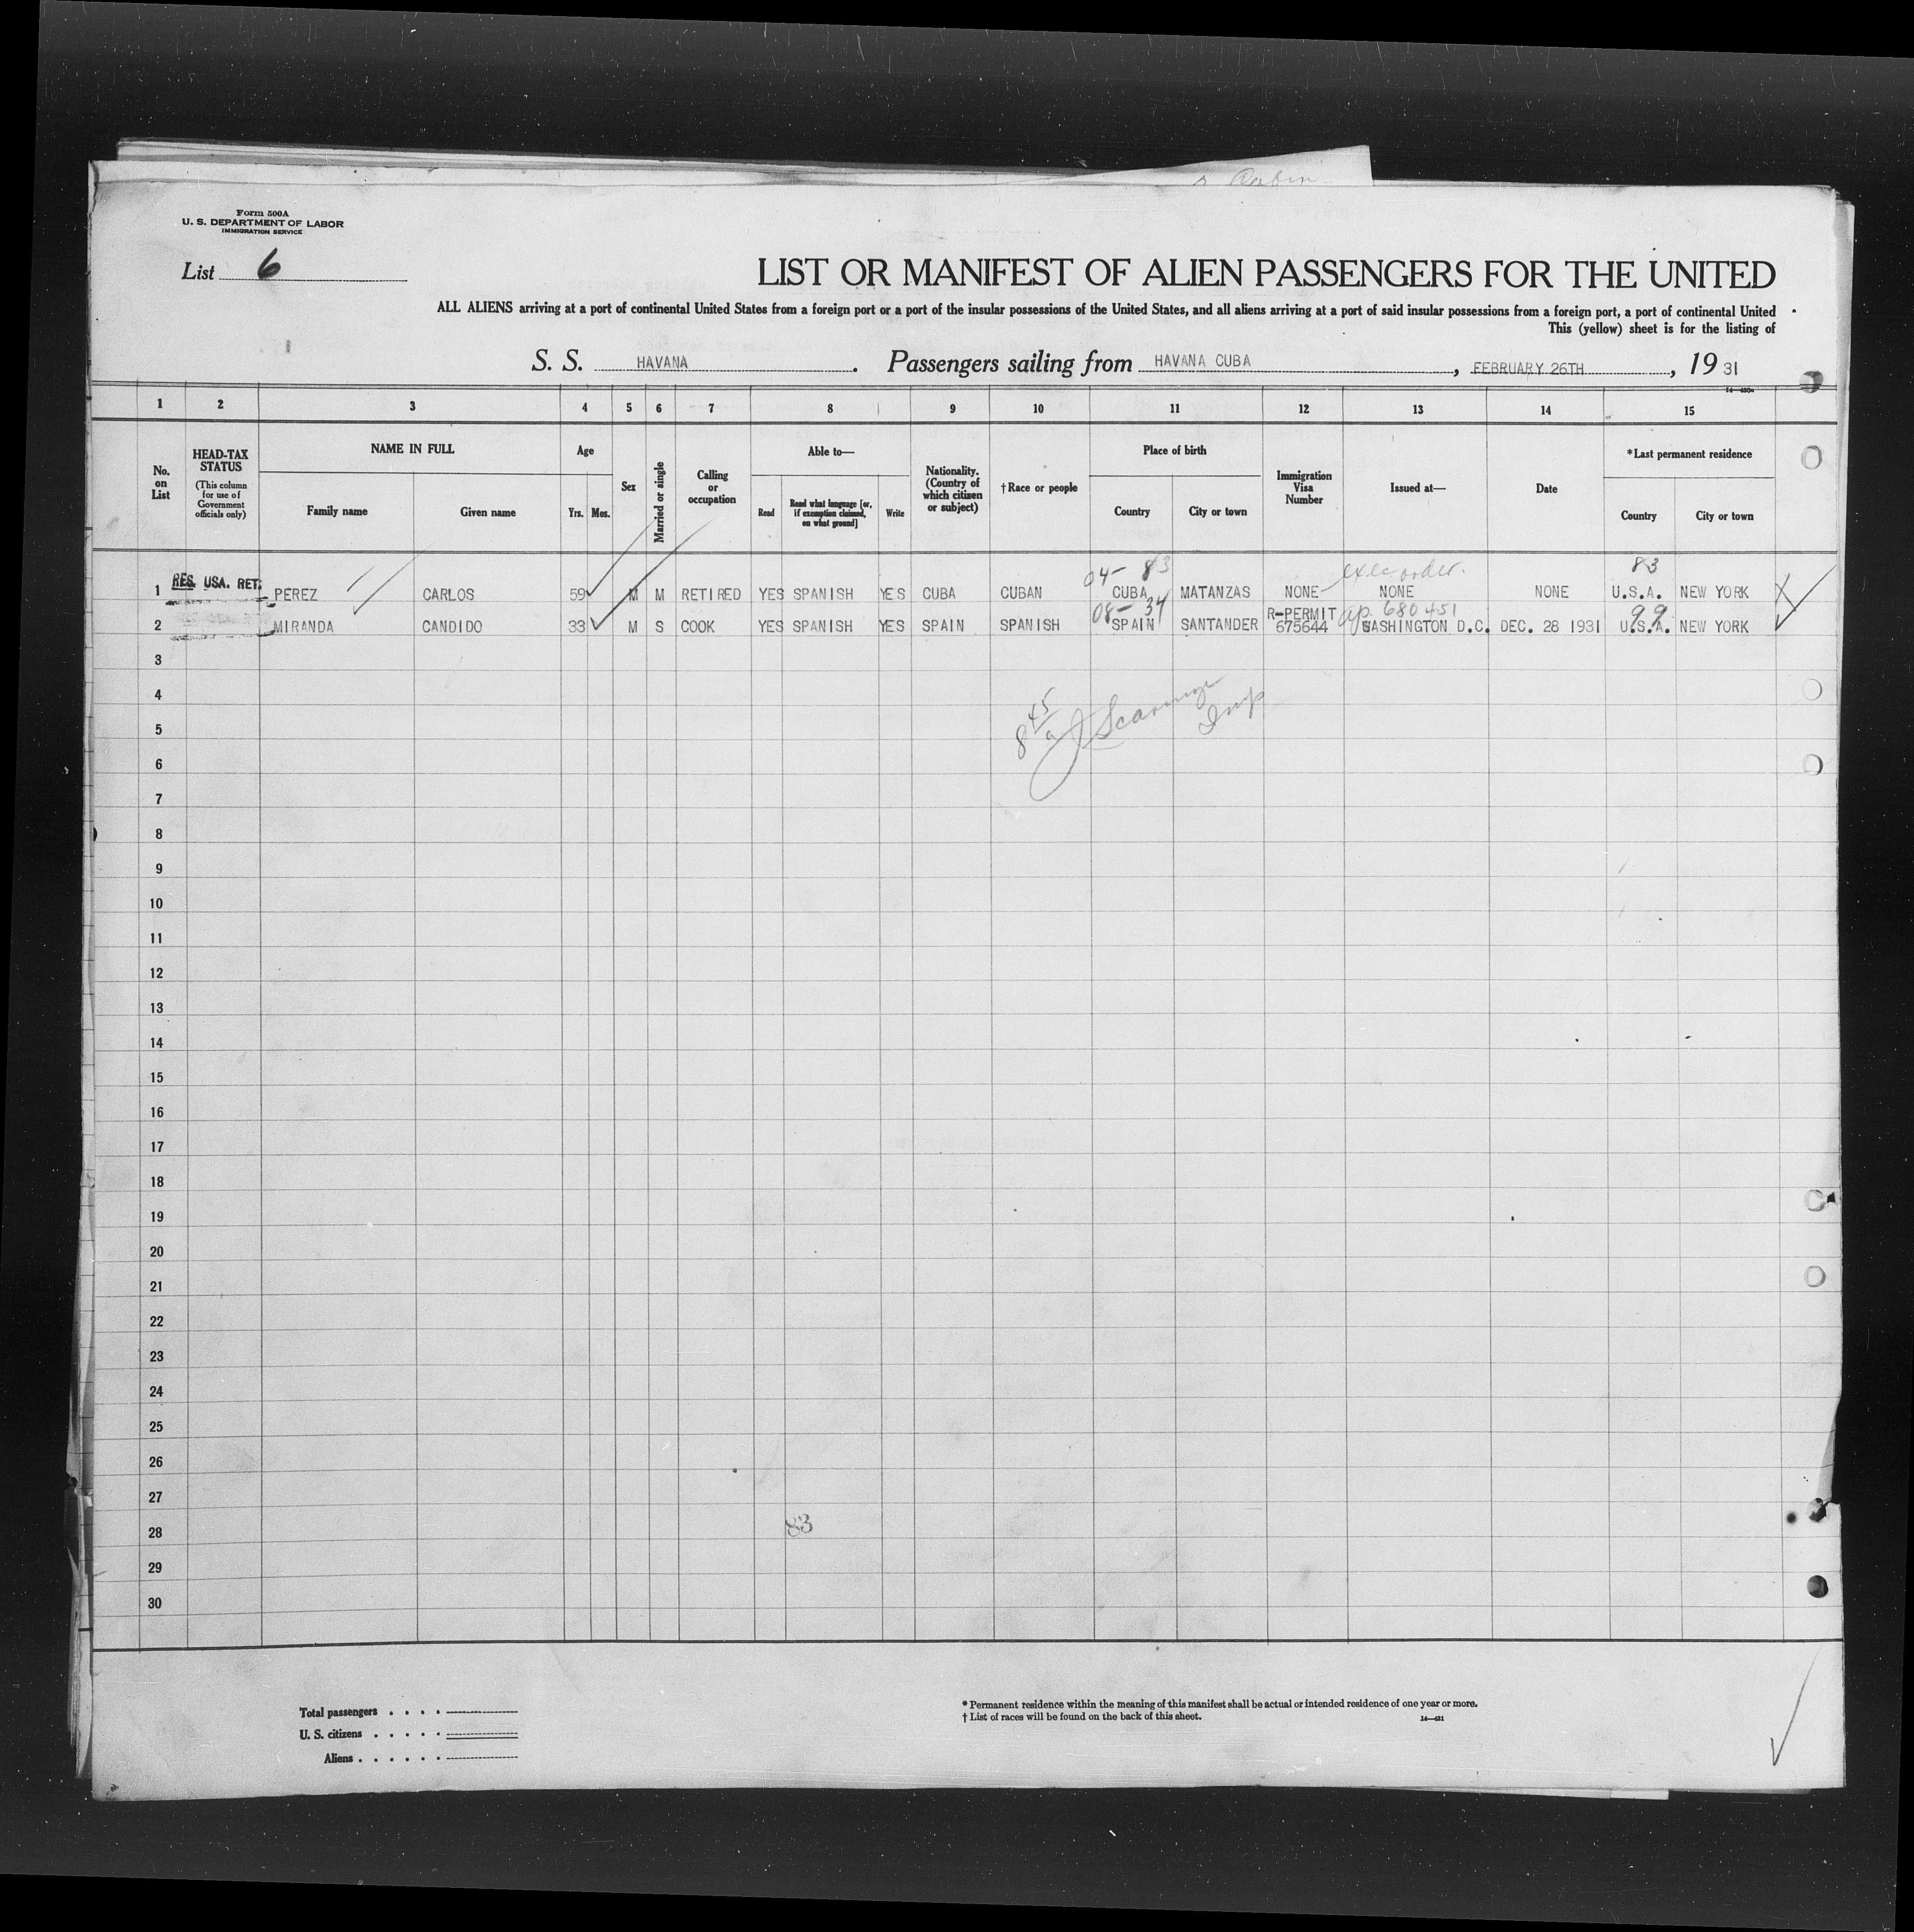 Cabin
Form 500A
U. S. DEPARTMENT OF LABOR
IMMIGRATION SERVICE
List 6
LIST OR MANIFEST OF ALIEN PASSENGERS FOR THE UNITED
ALL ALIENS arriving at a port of continental United States from a foreign port or a port of the insular possessions of the United States, and all aliens arriving at a port of said insular possessions from a foreign port, a port of continental United
This (yellow) sheet is for the listing of
S. S. HAVANA. Passengers sailing from HAVANA CUBA, FEBRUARY 26TH, 19 31
1 2 3 4 5 6 7 8 9 10 11 12 13 14 15
No. on List
HEAD-TAX STATUS (This column for use of Government officials only)
NAME IN FULL
Family name Given name
Age
Yrs. Mos.
Sex
Married or single
Calling or occupation
Able to—
Read
Read what language [or, if exemption claimed, on what ground]
Write
Nationality. (Country of which citizen or subject)
†Race or people
Place of birth
Country City or town
Immigration Visa Number
Issued at—
Date
*Last permanent residence
Country City or town
04- 83 exec order. 83
1 RES. USA. RET: PEREZ CARLOS 59 M M RETIRED YES SPANISH YES CUBA CUBAN CUBA MATANZAS NONE NONE NONE U.S.A. NEW YORK
08- 34 R-PERMIT ap. 680451 99
2 MIRANDA CANDIDO 33 M S COOK YES SPANISH YES SPAIN SPANISH SPAIN SANTANDER 675644 WASHINGTON D.C. DEC. 28 1931 U.S.A. NEW YORK
3
4
8 45 a
Insp
5
6
7
8
9
10
11
12
13
14
15
16
17
18
19
20
21
22
23
24
25
26
27
28 83
29
30
Total passengers . . . .
U. S. citizens . . . . .
Aliens . . . . . .
* Permanent residence within the meaning of this manifest shall be actual or intended residence of one year or more.
† List of races will be found on the back of this sheet. 14—431